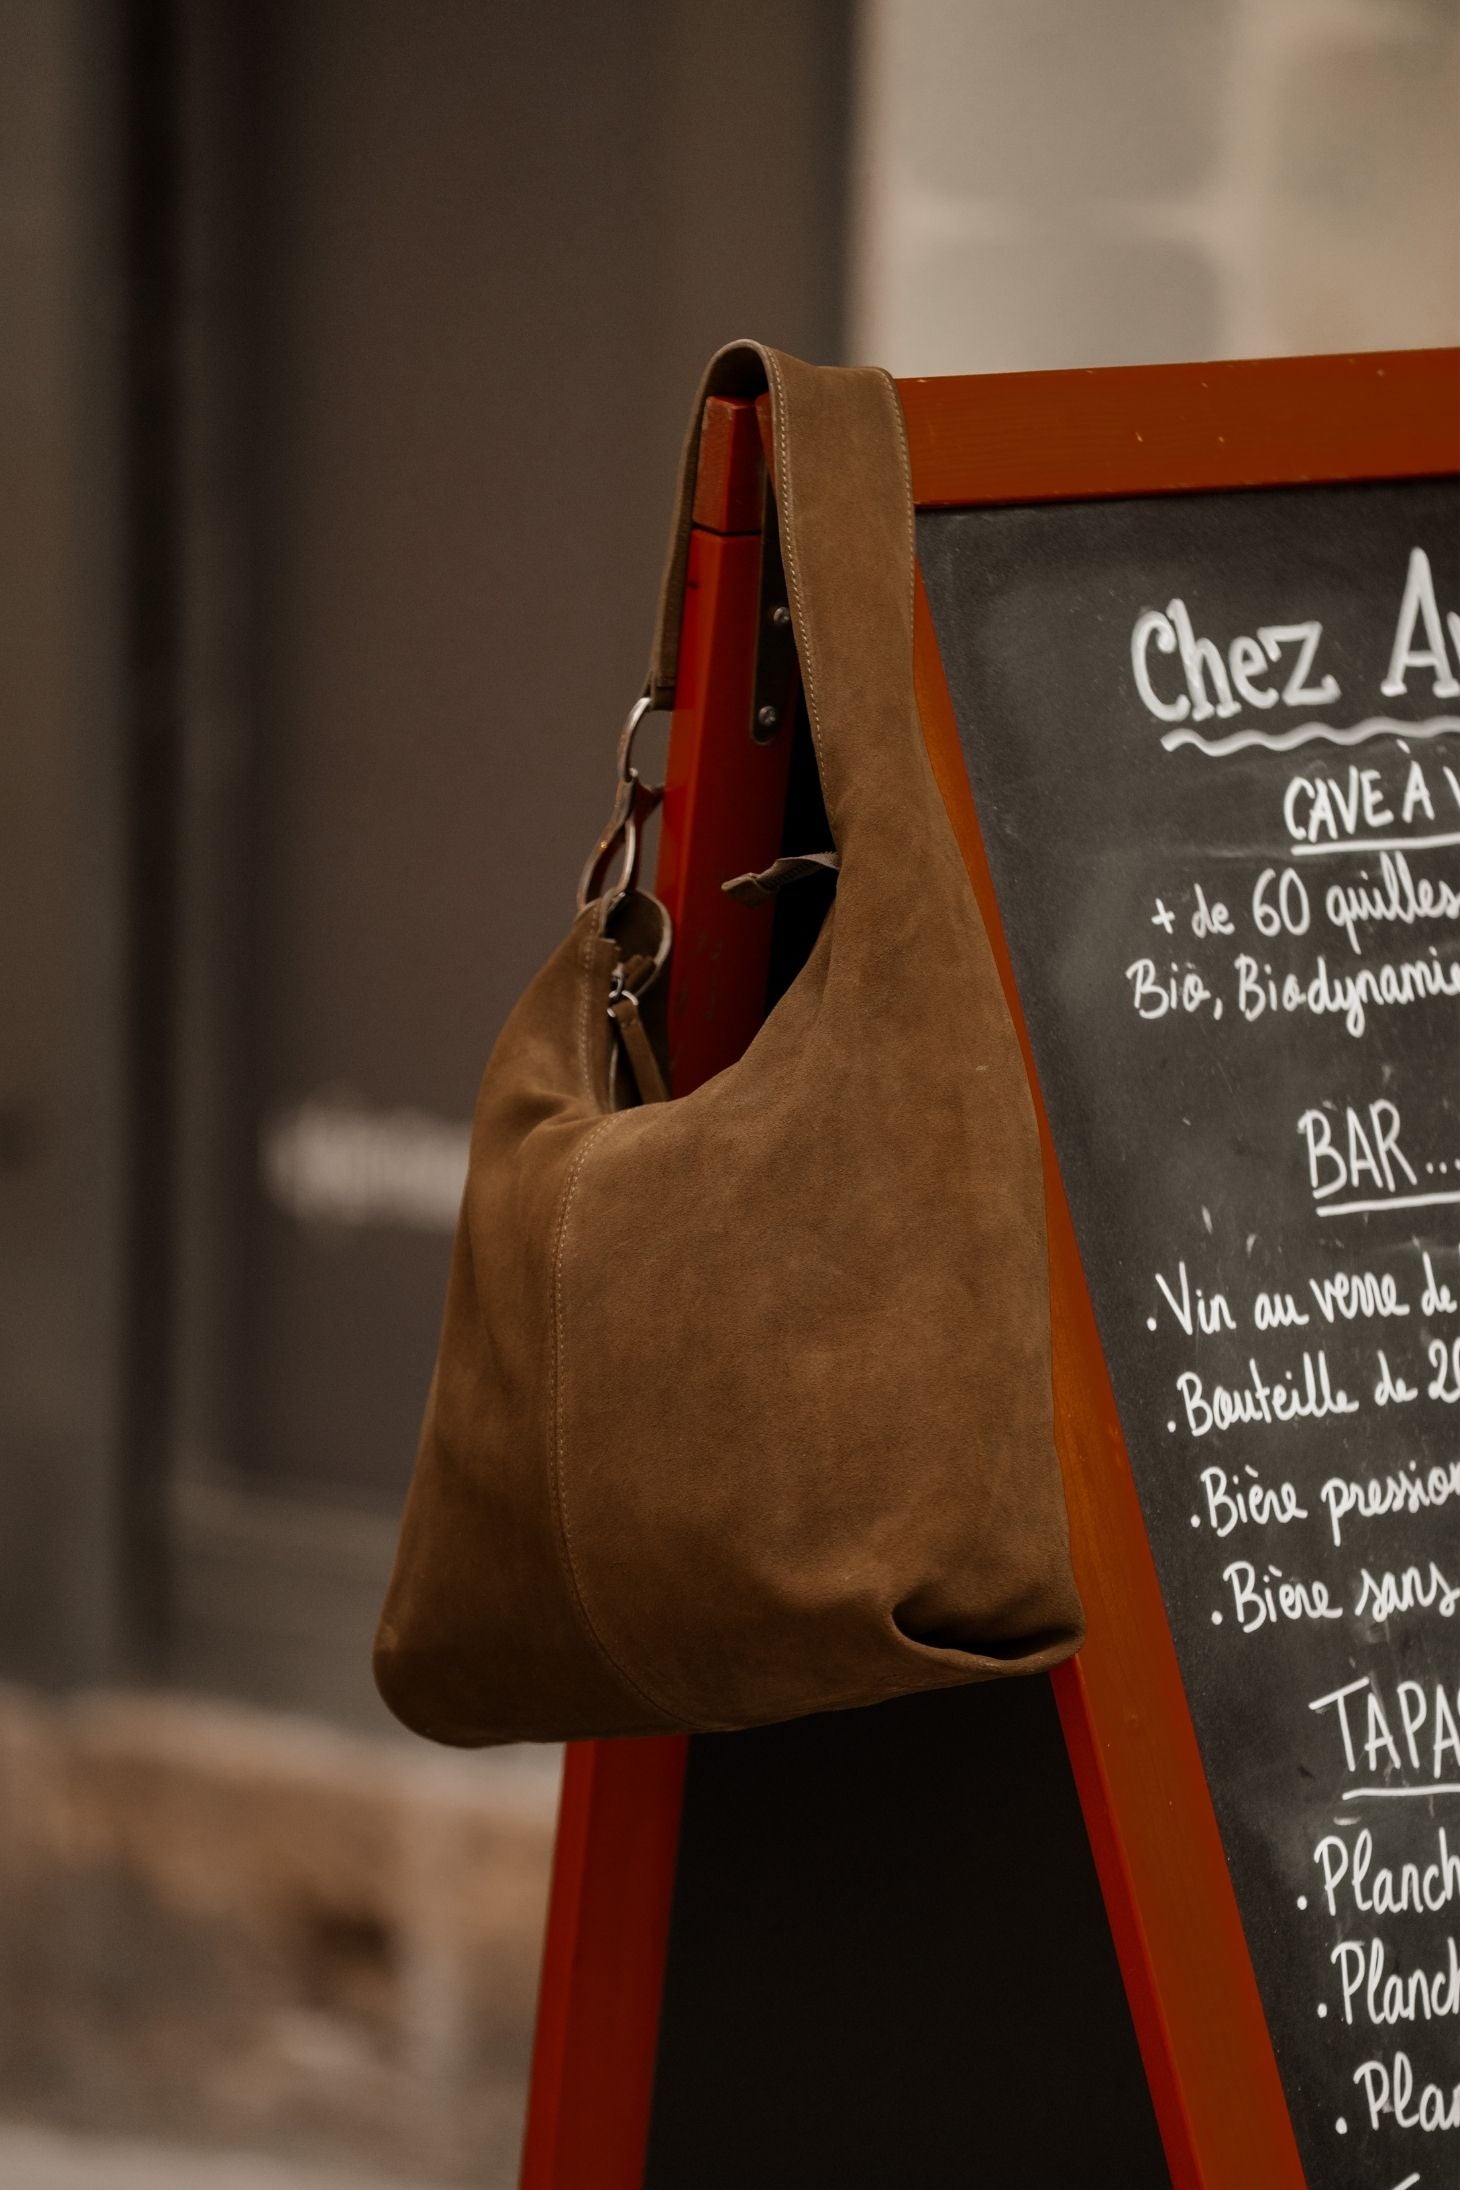 Chez A
CAVE À
+ de 60 quilles
Bio, Biodynamie
BAR...
. Vin au verre de
. Bouteille de 20
. Bière pression
. Bière sans
TAPAS
. Planch
. Planch
. Plan